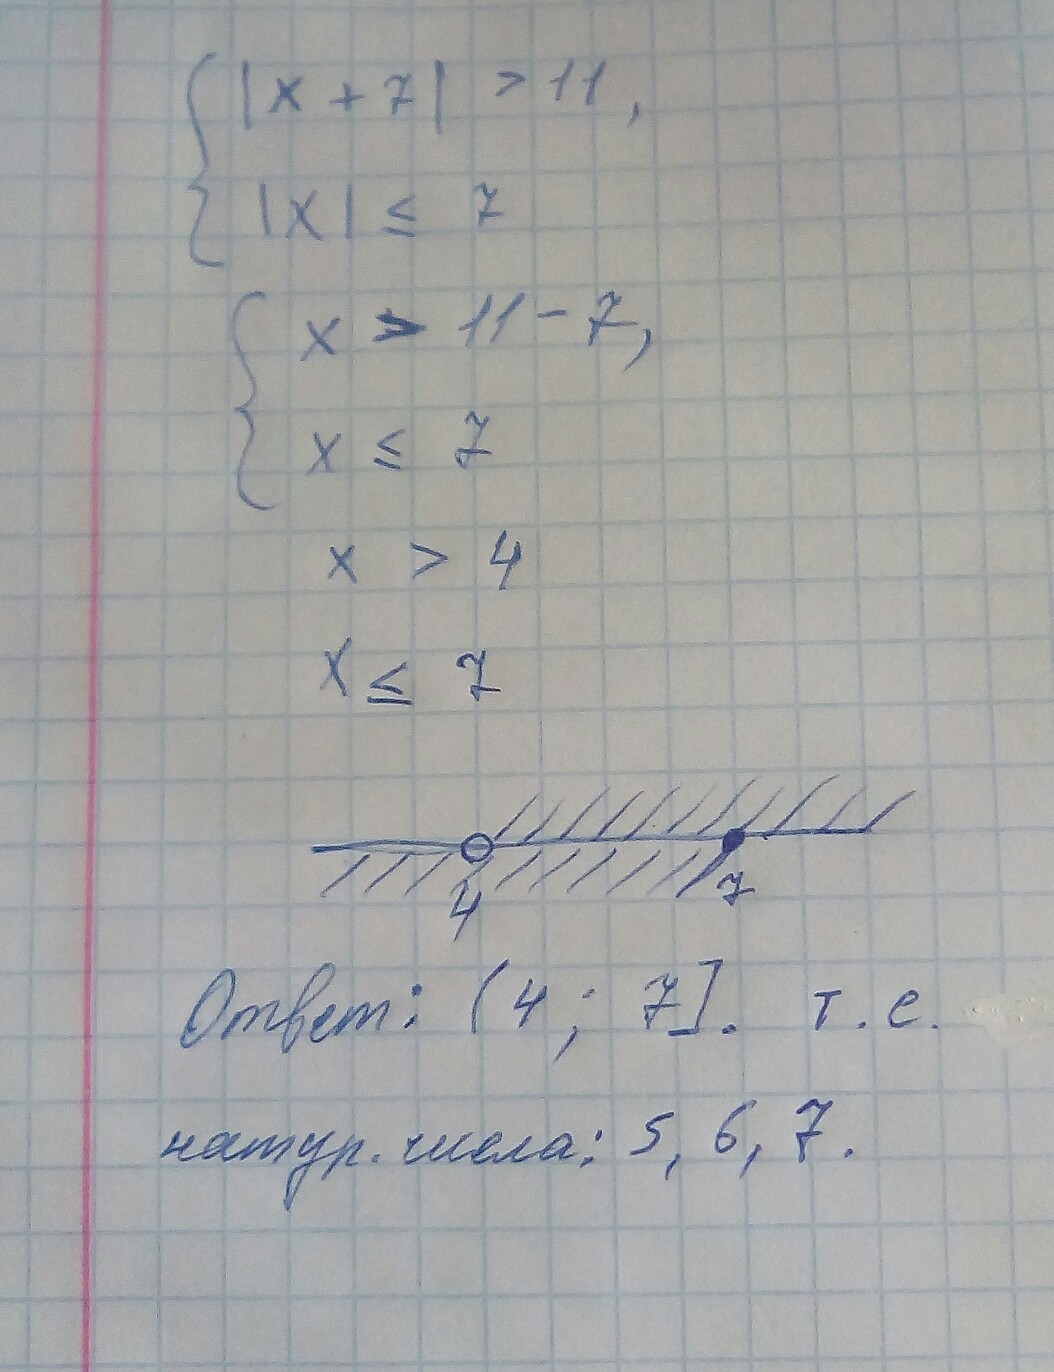 |x + 7| > 11,
|x| ≤ 7
x > 11 - 7,
x ≤ 7
x > 4
x ≤ 7
4 7
Ответ: (4; 7]. т.е.
натур. числа: 5, 6, 7.